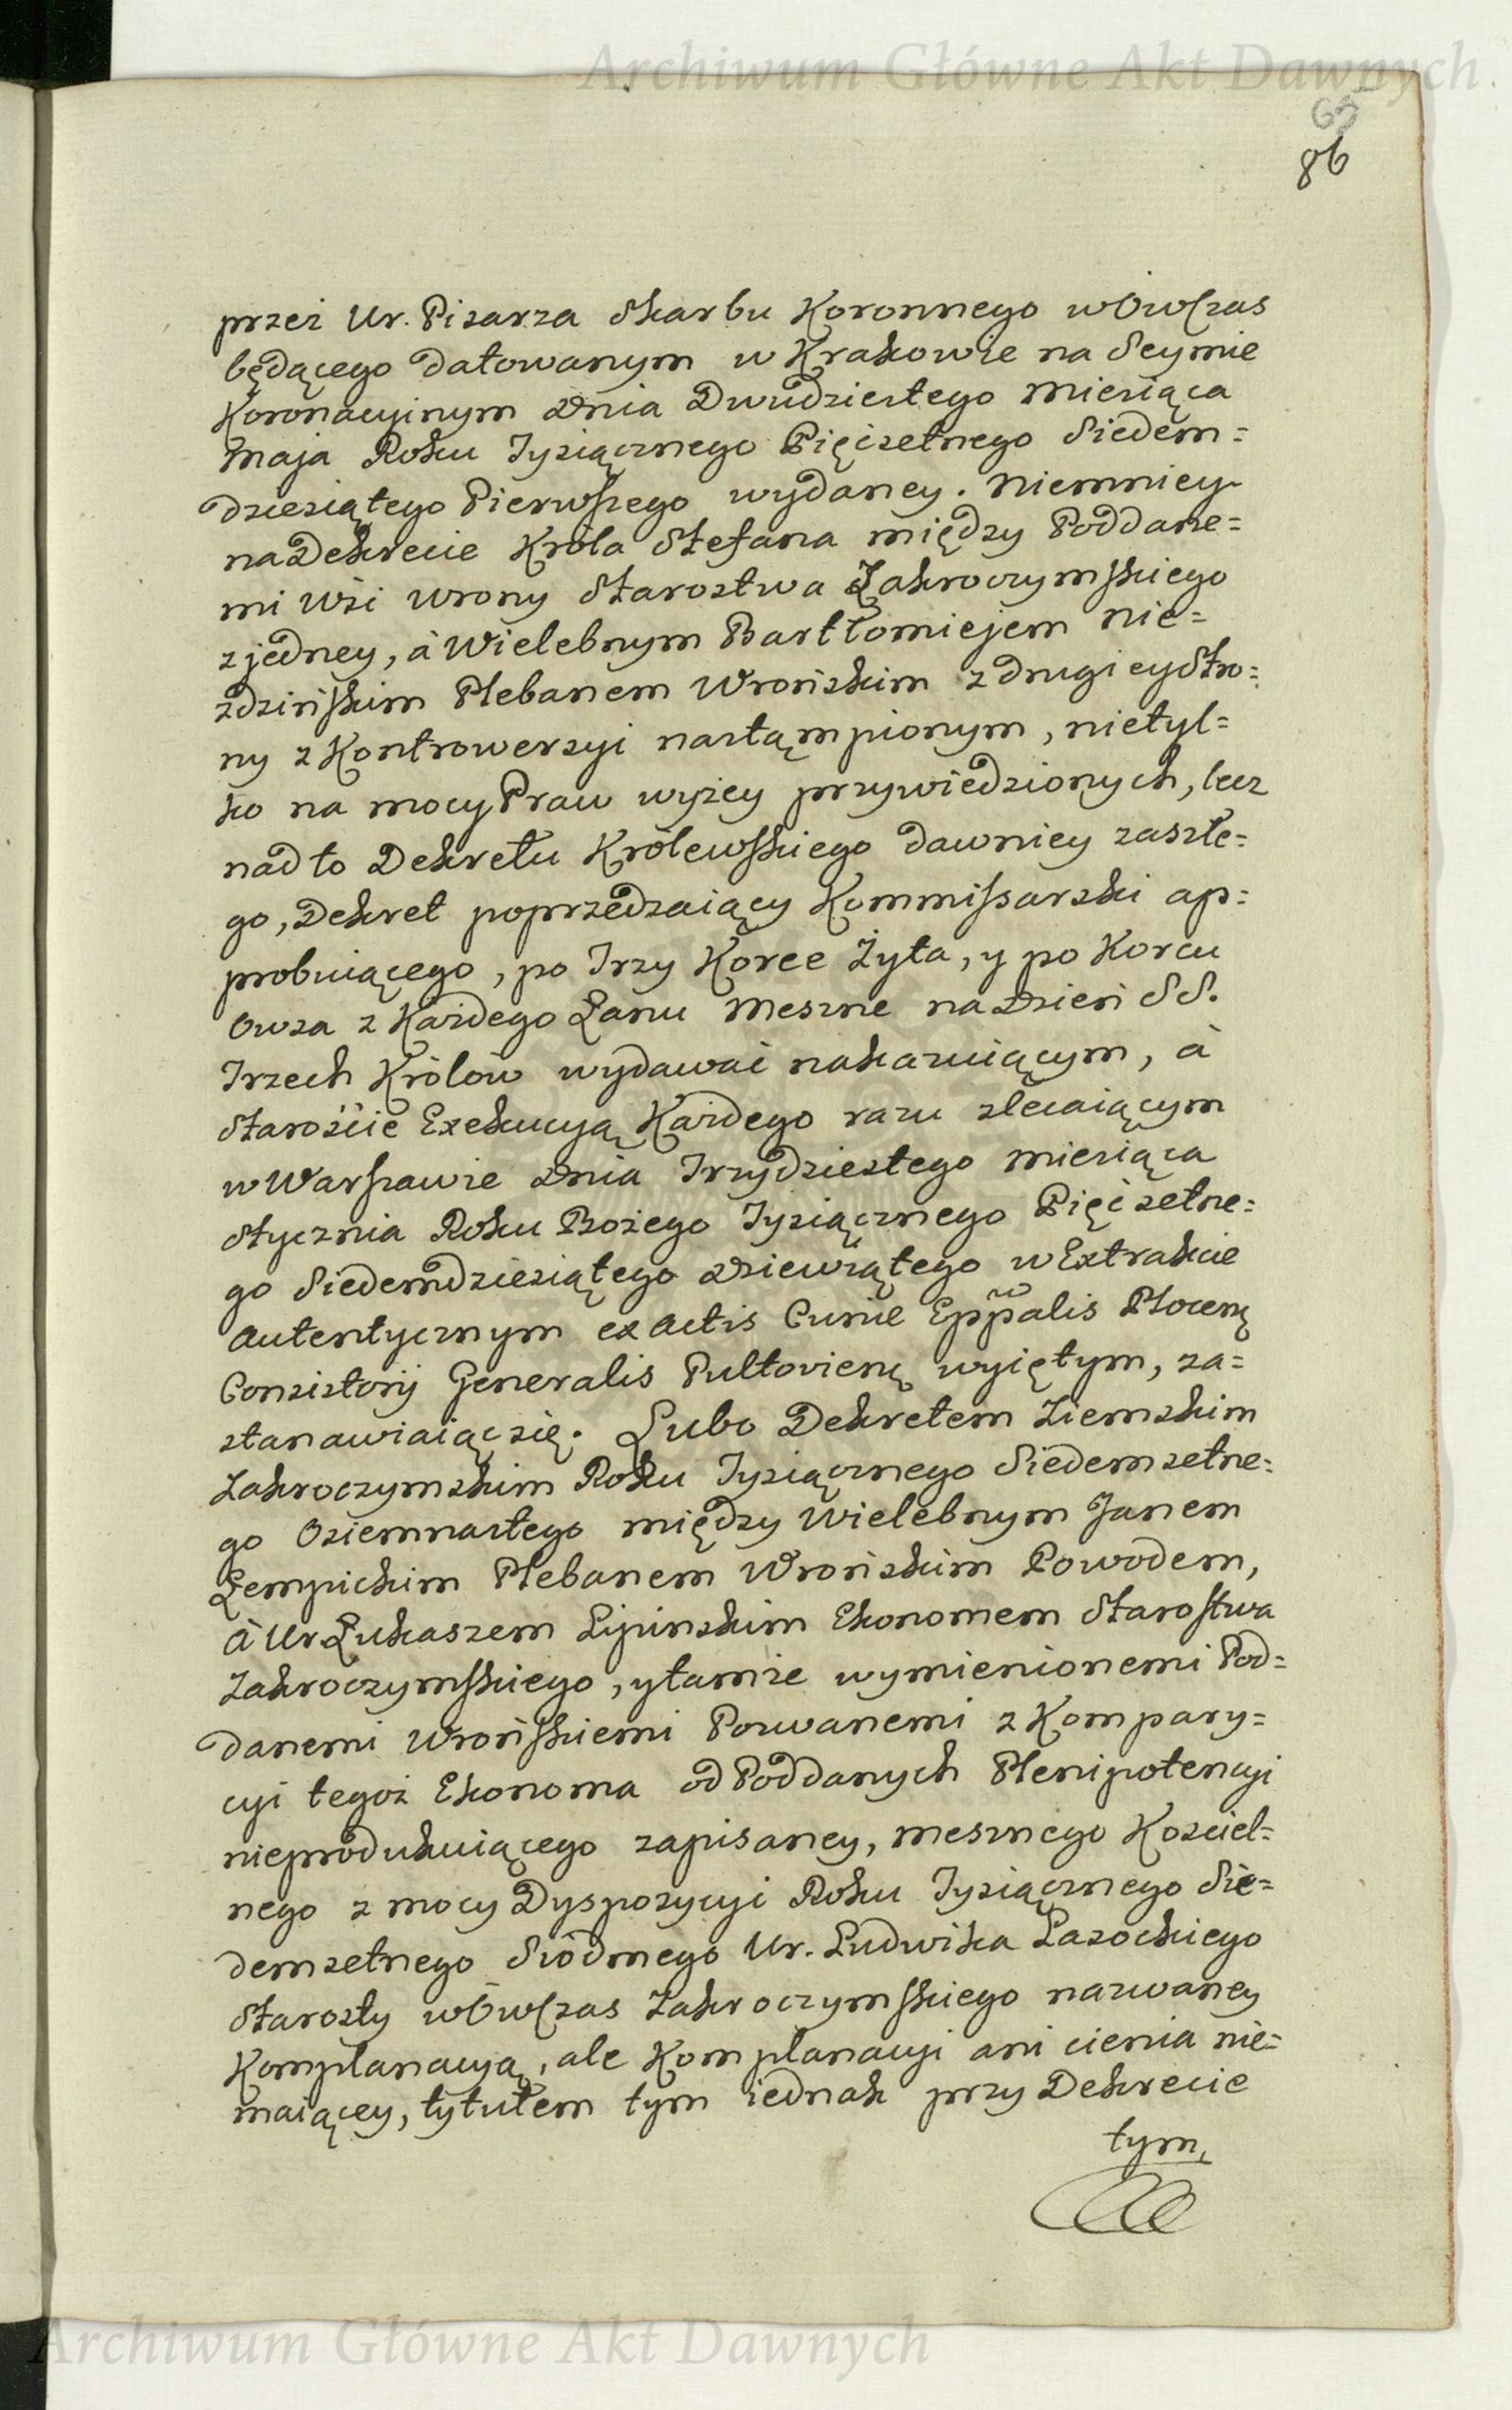 Archiwum Główne Akt Dawnych
65
86
przez Ur. Pisarza Skarbu Koronnego wówczas
będącego datowanym w Krakowie na Seymie
Koronacyjnym Dnia Dwudziestego Miesiąca
Maja Roku Tysiącznego Pięćsetnego Siedem=
dziesiątego Pierwszego wydaney. Niemniey
na Dekrecie Króla Stefana między Poddane=
mi Wsi Wrony Starostwa Zakroczymskiego
z jedney, à Wielebnym Bartłomiejem Nie=
zdzińskim Plebanem Wrońskim z drugiey Stro=
ny z Kontrowersyi nastąmpionym, nietyl=
ko na mocy Praw wyżey przywiedzionych, lecz
nadto Dekretu Królewskiego dawniey zaszłe=
go, Dekret poprzedzaiący Kommissarski ap=
probuiącego, po Trzy Korce Żyta, y po Korcu
Owsa z Każdego Łanu Meszne na Dzień SS.
Trzech Królów wydawać nakazuiącym, à
Starościie Exekucyą Każdego razu zlecaiącym
w Warszawie Dnia Trzydziestego Miesiąca
Stycznia Roku Bożego Tysiącznego Pięćsetne=
go Siedemdziesiątego Dziewiątego w Extrakcie
Autentycznym ex Actis Curiæ Eppalis Plocen̨
Consistorij Generalis Pultovien̨ wyiętym, za=
stanawiaiąc się. Lubo Dekretem Ziemskim
Zakroczymskim Roku Tysiącznego Siedemsetne=
go Osiemnastego między Wielebnym Janem
Łempickim Plebanem Wrońskim Powodem,
à Ur Łukaszem Lipinskim Ekonomem Starostwa
Zakroczymskiego, y tamże wymienionemi Pod=
danemi Wrońskiemi Pozwanemi z Kompary=
cyi tegoż Ekonoma od Poddanych Plenipotencyi
nieprodukuiącego zapisaney, mesznego Kosciel=
nego z mocy Dyspozycyi Roku Tysiącznego Sie=
demsetnego Siódmego Ur. Ludwika Lasockiego
Starosty wówczas Zakroczymskiego nazwaney
Komplanacyą, ale Komplanacyi ani cienia nie=
maiącey, tytułem tym iednak przy Dekrecie
tym,
Archiwum Główne Akt Dawnych